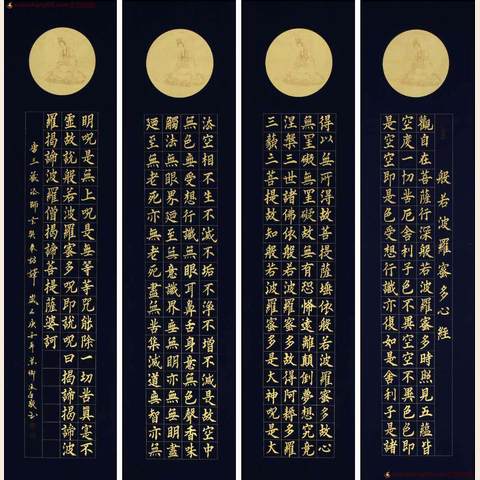 般若波羅蜜多心經
觀自在菩薩行深般若波羅蜜多時照見五蘊皆
空度一切苦厄舍利子色不異空空不異色色即
是空空即是色受想行識亦復如是舍利子是諸
法空相不生不滅不垢不淨不增不減是故空中
無色無受想行識無眼耳鼻舌身意無色聲香味
觸法無眼界迺至無意識界無無明亦無無明盡
迺至無老死亦無老死盡無苦集滅道無智亦無
得以無所得故菩提薩埵依般若波羅蜜多故心
無罣礙無罣礙故無有恐怖遠離顛倒夢想究竟
涅槃三世諸佛依般若波羅蜜多故得阿耨多羅
三藐三菩提故知般若波羅蜜多是大神呪是大
明呪是無上呪是無等等呪能除一切苦真實不
虛故說般若波羅蜜多呪即說呪曰揭諦揭諦波
羅揭諦波羅僧揭諦菩提薩婆訶
唐三藏法師玄奘奉詔譯